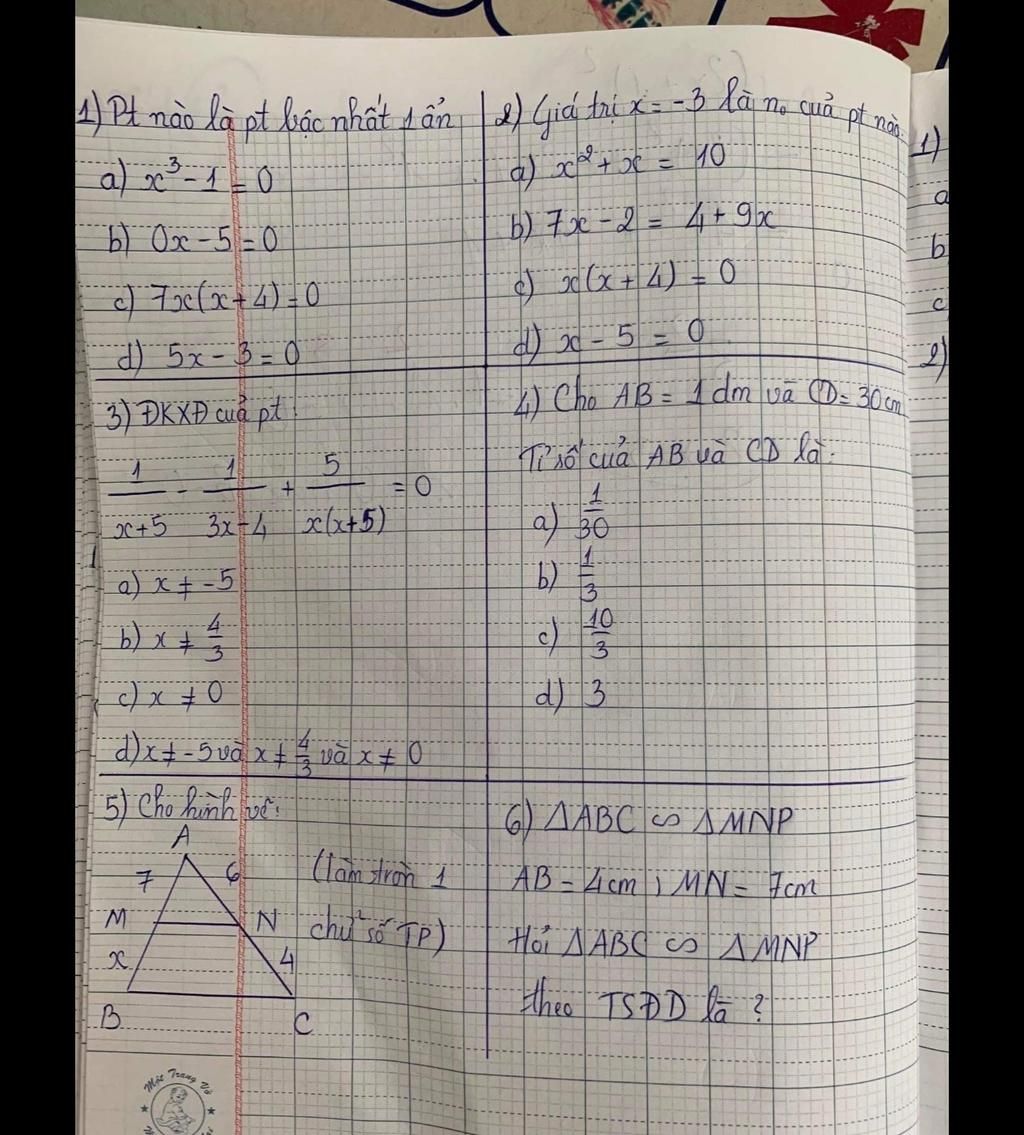 1) Pt nào là pt bậc nhất 1 ẩn
a) x³ - 1 = 0
b) 0x - 5 = 0
c) 7x(x + 4) = 0
d) 5x - 3 = 0
2) Giá trị x = -3 là no của pt nào.
a) x² + x = 10
b) 7x - 2 = 4 + 9x
c) x(x + 4) = 0
d) x - 5 = 0
3) ĐKXĐ của pt
1/(x+5) - 1/(3x-4) + 5/(x(x+5)) = 0
a) x ≠ -5
b) x ≠ 4/3
c) x ≠ 0
d) x ≠ -5 và x ≠ 4/3 và x ≠ 0
4) Cho AB = 1 dm và CD = 30 cm
Tỉ số của AB và CD là.
a) 1/30
b) 1/3
c) 10/3
d) 3
5) Cho hình vẽ:
(làm tròn 1
chữ số TP)
A
7 6
M N
x 4
B C
6) ΔABC ∽ ΔMNP
AB = 4cm ; MN = 7cm
Hỏi ΔABC ∽ ΔMNP
theo TSĐD là ?
Một Trang Vở
1)
a
b
c
2)